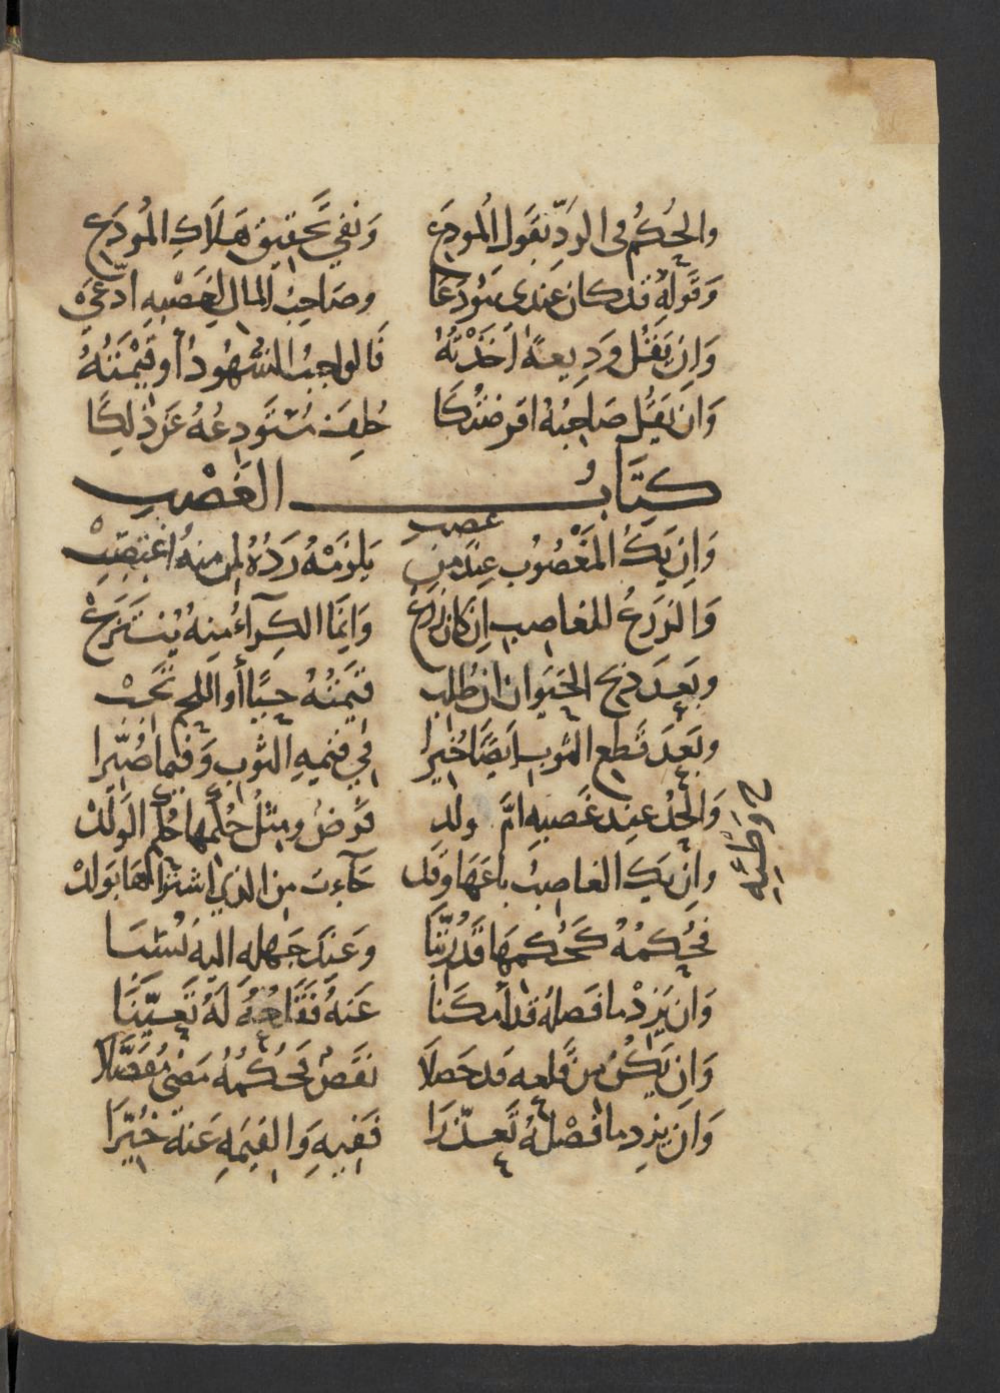 والحُكمُ في الردِّ بقَول المُودَعِ وَنفي تَحقيق هَلَاكِ المُودَعِ
وَقَولُهُ قد كان عندي مُودَعَا وصَاحِبُ المال لِغَصْبِهِ ادَّعَى
وَاِن يَقُل وَدِيعةً اَخَذْتُهُ فَالواجبُ الشُّهُودُ أو قيْمَتُهُ
وَان يَقُل صَاحِبُهُ اقرضتُكَا حُلِّفَ مُسْتَودِعُهُ عَن ذلِكَا
كِتَابُ الغَصْبِ
وَاِن يَكُ المَغْصُوبُ عِندَ من غصب يَلزَمْهُ رَدُّهُ لمن منهُ اغتُصِبْ
وَالزرعُ للغاصبِ اِن كان زَرَعْ وَاِنمَّا الكِرآءُ مِنهُ يُنتَزَعْ
وبَعدَ ذبح الحَيَوان ان طُلِب قيمَتُهُ حيًّا أو اللحم تَجبْ
وبَعدَ قَطع الثوبِ اَيضًا خُيّرا في قيمةِ الثوبِ وَفيما صُيّرا
وَالحدُ عند غَصبه امَّ ولد فَرضٌ ومِثلُ حُكْمها حُكْم الوَلَدْ
ح وَطْئِهِ
واِن يَكُ الغاصِبُ باعَهَا وَقد جَآءت مِن الذي اشترَاهَا بَولَدْ
فحُكمُهُ كحُكمِهَا قَد بُيِّنَا وَعندَ جَهله اليه نُسِبَا
وَان يَزِدْ ما فصلُهُ قد أمكَنَا عَنهُ لَهُ تَعيَّنَا
وَاِن يَكُن مِن قَلعه قد حَصَلَا نقصٌ فحُكمُهُ مَضَى مُفَصَّلَا
وَاِن يزِد ما فَصْلُهُ تَعذّرَا فَفيهِ وَالقيمَهِ عَنهُ خُيّرَا